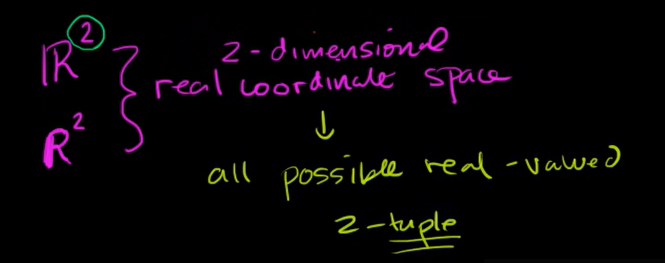 ℝ² } 2-dimensional
R² real coordinate space
↓
all possible real-valued
2-tuple